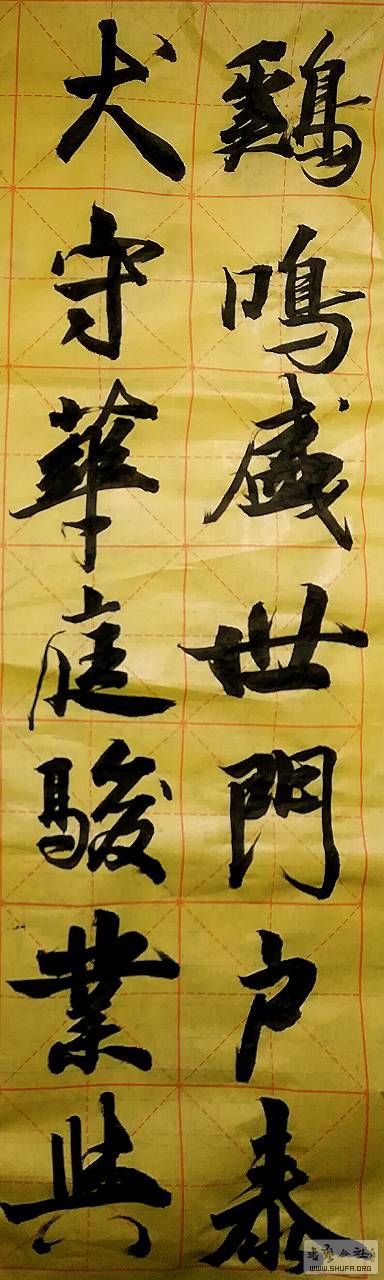 鷄鳴盛世門户泰
犬守華庭駿業興
书艺公社
WWW.SHUFA.ORG